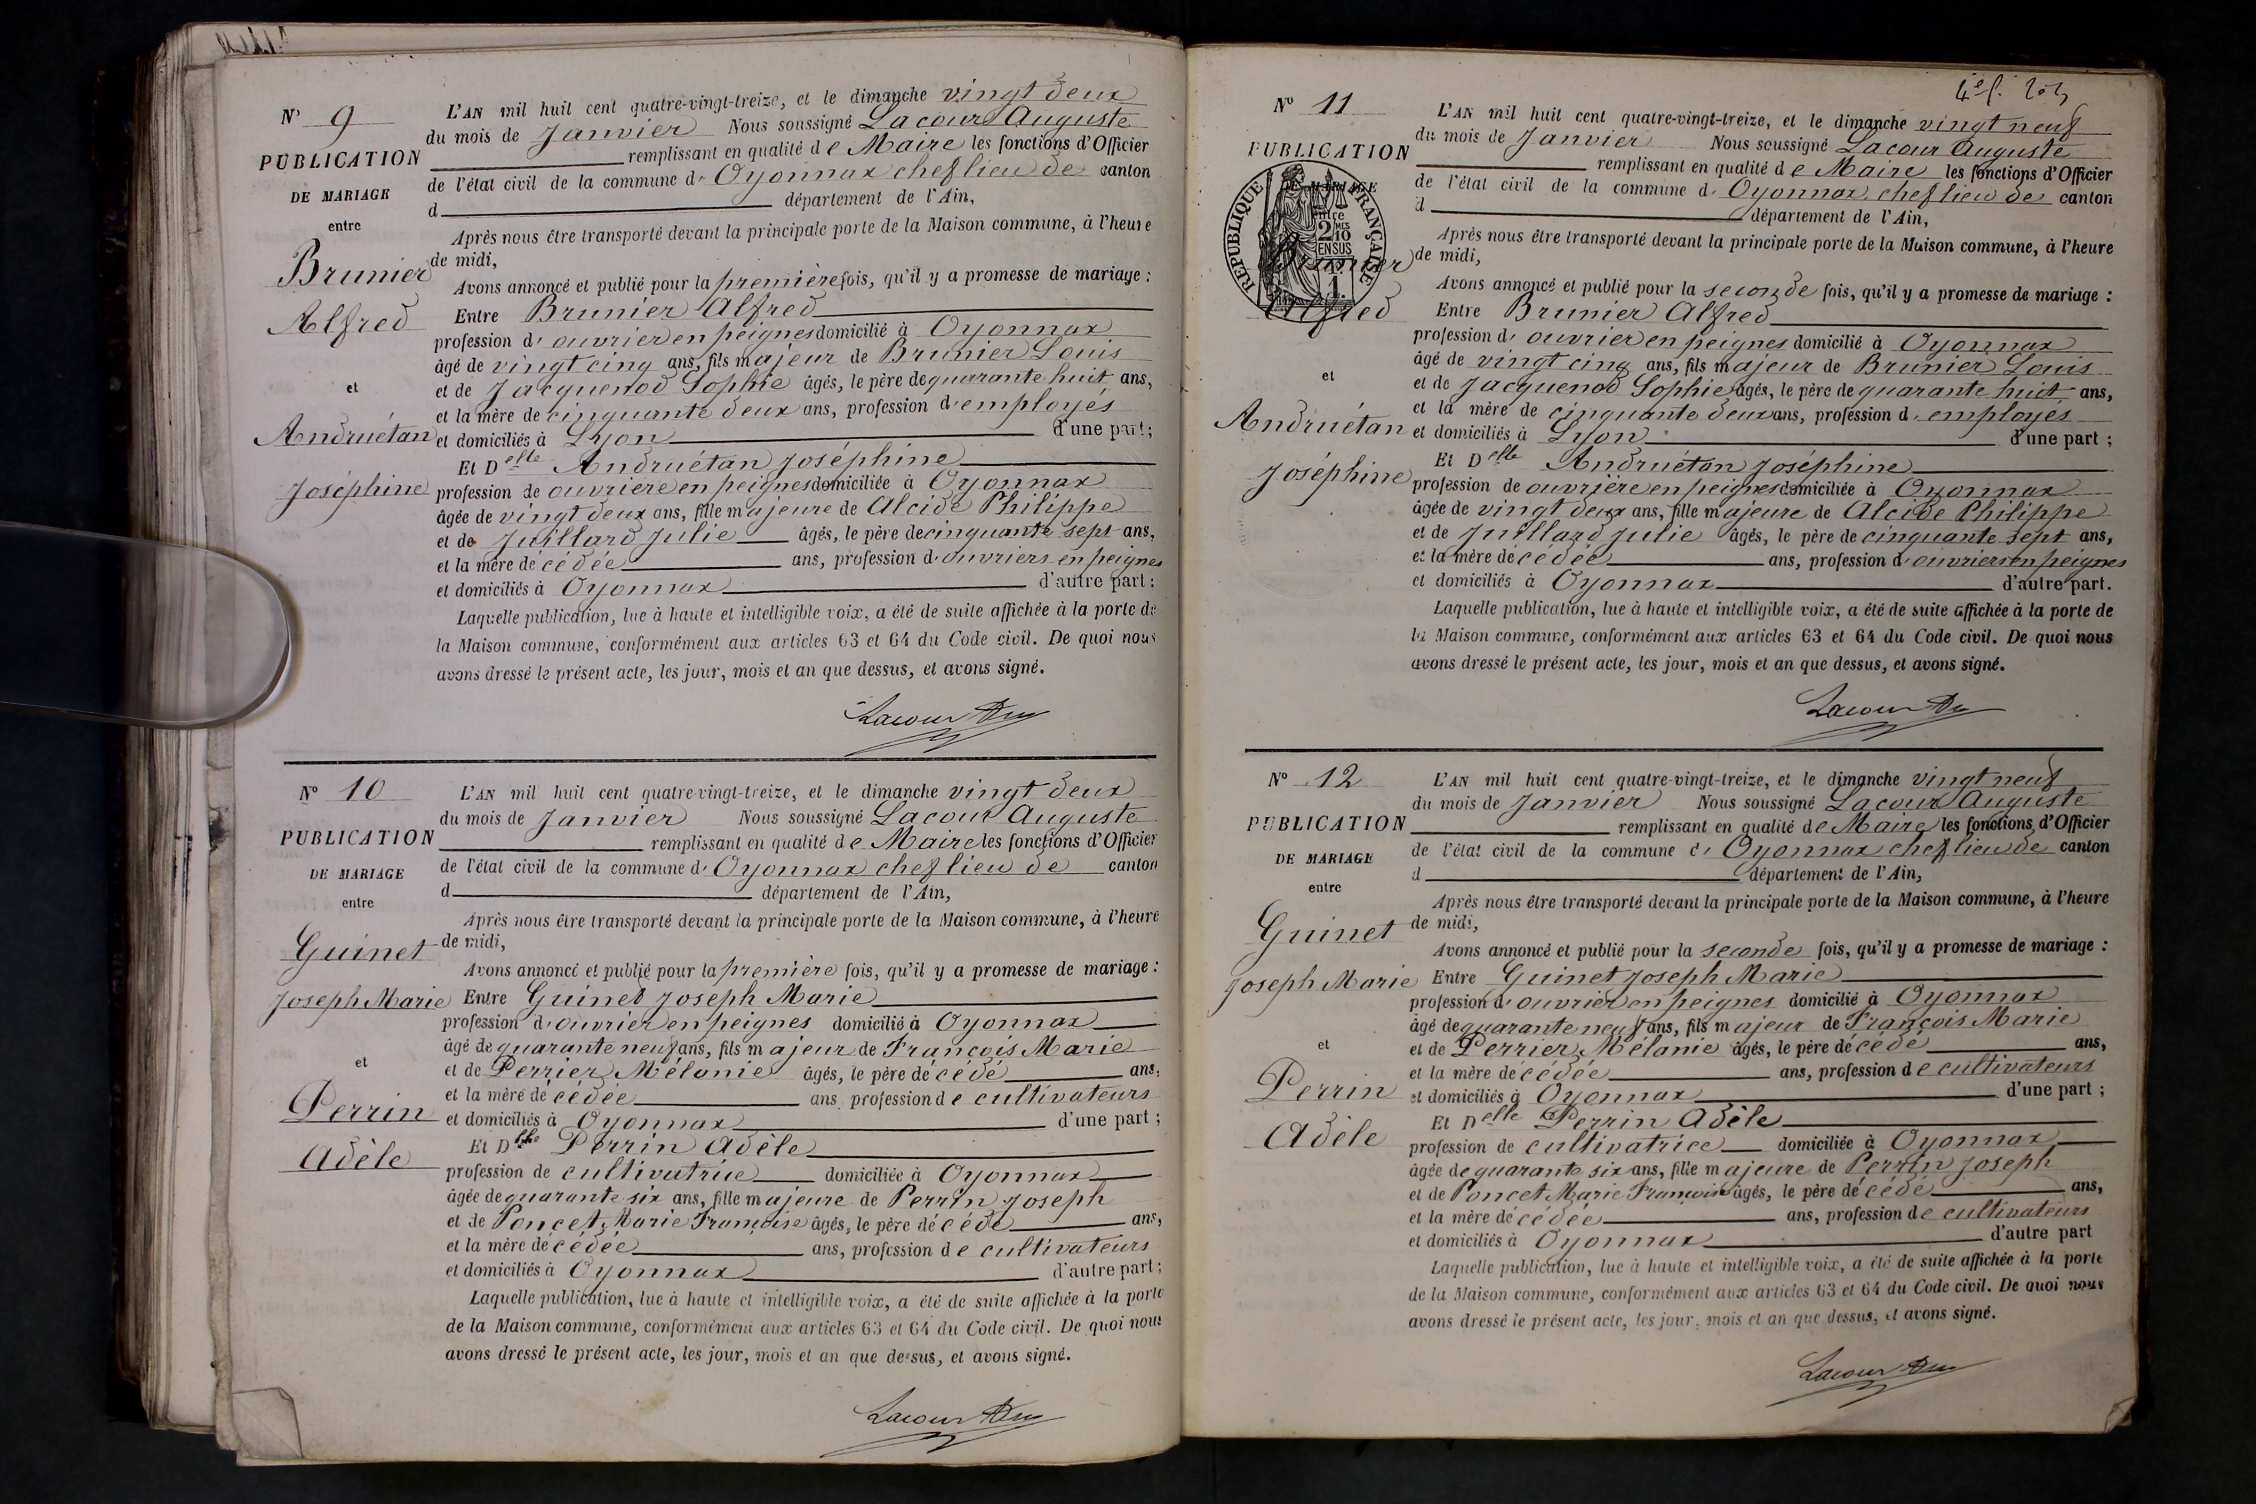 N° 9
PUBLICATION
DE MARIAGE
entre
Brunier
Alfred
et
Andruétan
Joséphine
L'AN mil huit cent quatre-vingt-treize, et le dimanche vingt deux
du mois de Janvier Nous soussigné Lacour Auguste
remplissant en qualité de Maire les fonctions d'Officier
de l'état civil de la commune d' Oyonnax chef lieu de canton
d département de l'Ain,
Après nous être transporté devant la principale porte de la Maison commune, à l'heure
de midi,
Avons annoncé et publié pour la première fois, qu'il y a promesse de mariage :
Entre Brunier Alfred
profession d' ouvrier en peignes domicilié à Oyonnax
âgé de vingt cinq ans, fils majeur de Brunier Louis
et de Jacquenod Sophie âgés, le père de quarante huit ans,
et la mère de cinquante deux ans, profession d' employés
et domiciliés à Lyon d'une part;
Et Delle Andruétan Joséphine
profession de ouvrière en peignes domiciliée à Oyonnax
âgée de vingt deux ans, fille majeure de Alcide Philippe
et de Juillard Julie âgés, le père de cinquante sept ans,
et la mère décédée ans, profession d' ouvriers en peignes
et domiciliés à Oyonnax d'autre part;
Laquelle publication, lue à haute et intelligible voix, a été de suite affichée à la porte de
la Maison commune, conformément aux articles 63 et 64 du Code civil. De quoi nous
avons dressé le présent acte, les jour, mois et an que dessus, et avons signé.
Lacour
N° 10
PUBLICATION
DE MARIAGE
entre
Guinet
Joseph Marie
et
Perrin
Adèle
L'AN mil huit cent quatre-vingt-treize, et le dimanche vingt deux
du mois de Janvier Nous soussigné Lacour Auguste
remplissant en qualité de Maire les fonctions d'Officier
de l'état civil de la commune d' Oyonnax chef lieu de canton
d département de l'Ain,
Après nous être transporté devant la principale porte de la Maison commune, à l'heure
de midi,
Avons annoncé et publié pour la première fois, qu'il y a promesse de mariage :
Entre Guinet Joseph Marie
profession d' ouvrier en peignes domicilié à Oyonnax
âgé de quarante neuf ans, fils majeur de François Marie
et de Perrier Mélanie âgés, le père décédé ans,
et la mère décédée ans, profession de cultivateurs
et domiciliés à Oyonnax d'une part ;
Et Delle Perrin Adèle
profession de cultivatrice domiciliée à Oyonnax
âgée de quarante six ans, fille majeure de Perrin Joseph
et de Poncet Marie Françoise âgés, le père décédé ans,
et la mère décédée ans, profession de cultivateurs
et domiciliés à Oyonnax d'autre part;
Laquelle publication, lue à haute et intelligible voix, a été de suite affichée à la porte
de la Maison commune, conformément aux articles 63 et 64 du Code civil. De quoi nous
avons dressé le présent acte, les jour, mois et an que dessus, et avons signé.
Lacour
N° 11
PUBLICATION
DE MARIAGE
entre
RÉPUBLIQUE FRANÇAISE
2 MES 10
EN SUS
Brunier
Alfred
et
Andruétan
Joséphine
L'AN mil huit cent quatre-vingt-treize, et le dimanche vingt neuf
du mois de Janvier Nous soussigné Lacour Auguste
remplissant en qualité de Maire les fonctions d'Officier
de l'état civil de la commune d' Oyonnax chef lieu de canton
d département de l'Ain,
Après nous être transporté devant la principale porte de la Maison commune, à l'heure
de midi,
Avons annoncé et publié pour la seconde fois, qu'il y a promesse de mariage :
Entre Brunier Alfred
profession d' ouvrier en peignes domicilié à Oyonnax
âgé de vingt cinq ans, fils majeur de Brunier Louis
et de Jacquenod Sophie âgés, le père de quarante huit ans,
et la mère de cinquante deux ans, profession d' employés
et domiciliés à Lyon d'une part ;
Et Delle Andruétan Joséphine
profession de ouvrière en peignes domiciliée à Oyonnax
âgée de vingt deux ans, fille majeure de Alcide Philippe
et de Juillard Julie âgés, le père de cinquante sept ans,
et la mère décédée ans, profession d' ouvriers en peignes
et domiciliés à Oyonnax d'autre part.
Laquelle publication, lue à haute et intelligible voix, a été de suite affichée à la porte de
la Maison commune, conformément aux articles 63 et 64 du Code civil. De quoi nous
avons dressé le présent acte, les jour, mois et an que dessus, et avons signé.
Lacour
N° 12
PUBLICATION
DE MARIAGE
entre
Guinet
Joseph Marie
et
Perrin
Adèle
L'AN mil huit cent quatre-vingt-treize, et le dimanche vingt neuf
du mois de Janvier Nous soussigné Lacour Auguste
remplissant en qualité de Maire les fonctions d'Officier
de l'état civil de la commune d' Oyonnax chef lieu de canton
d département de l'Ain,
Après nous être transporté devant la principale porte de la Maison commune, à l'heure
de midi,
Avons annoncé et publié pour la seconde fois, qu'il y a promesse de mariage :
Entre Guinet Joseph Marie
profession d' ouvrier en peignes domicilié à Oyonnax
âgé de quarante neuf ans, fils majeur de François Marie
et de Perrier Mélanie âgés, le père décédé ans,
et la mère décédée ans, profession de cultivateurs
et domiciliés à Oyonnax d'une part ;
Et Delle Perrin Adèle
profession de cultivatrice domiciliée à Oyonnax
âgée de quarante six ans, fille majeure de Perrin Joseph
et de Poncet Marie Françoise âgés, le père décédé ans,
et la mère décédée ans, profession de cultivateurs
et domiciliés à Oyonnax d'autre part
Laquelle publication, lue à haute et intelligible voix, a été de suite affichée à la porte
de la Maison commune, conformément aux articles 63 et 64 du Code civil. De quoi nous
avons dressé le présent acte, les jour, mois et an que dessus, et avons signé.
Lacour